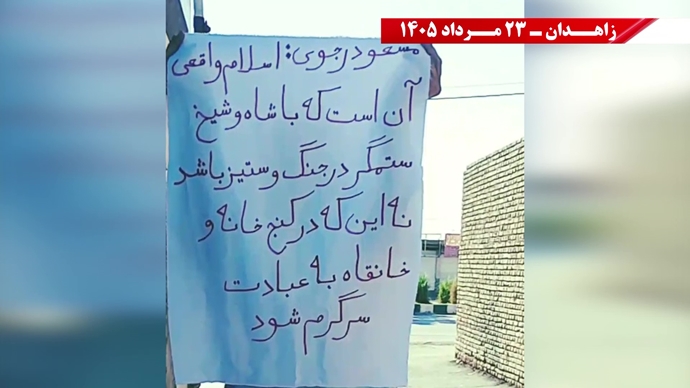 زاهـدان ـ ۲۳ مـرداد ۱۴۰۵
مسعود رجوی: اسلام واقعی
آن است که با شاه و شیخ
ستمگر در جنگ و ستیز باشد
نه این که در کنج خانه و
خانقاه به عبادت
سرگرم شود